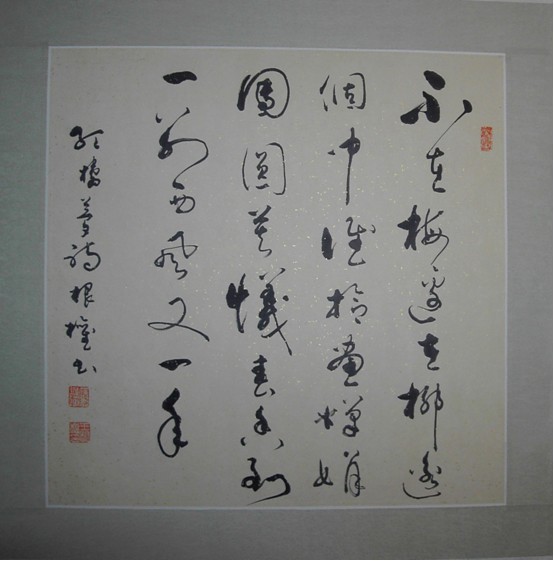 不在梅邊在柳邊
個中誰拾畫嬋娟
團圓莫憶春香到
一別西風又一年
紅樓夢詩 根權書